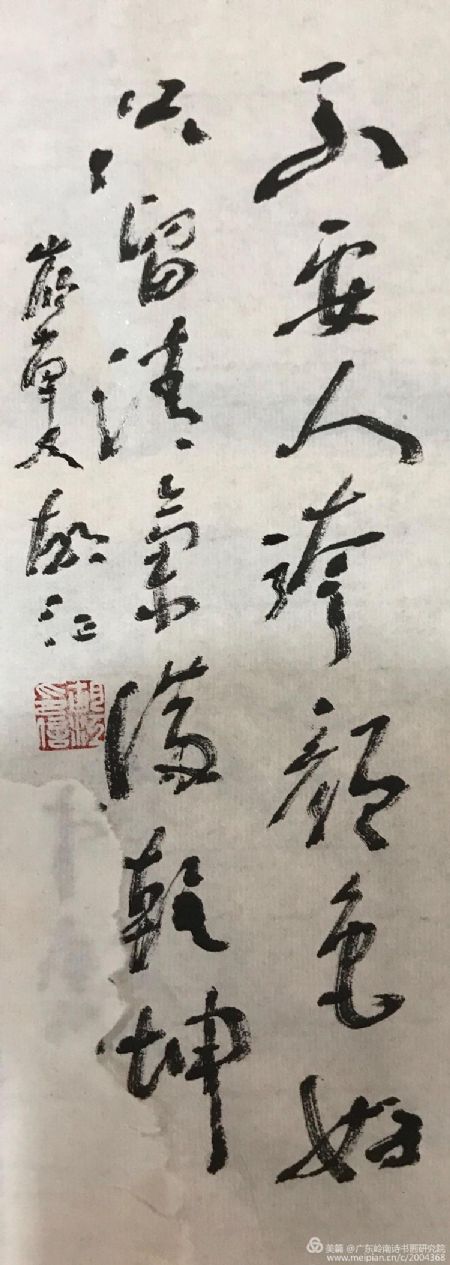 不要人誇顏色好
只留清氣滿乾坤
美篇 @广东岭南诗书画研究院
www.meipian.cn/c/2004368